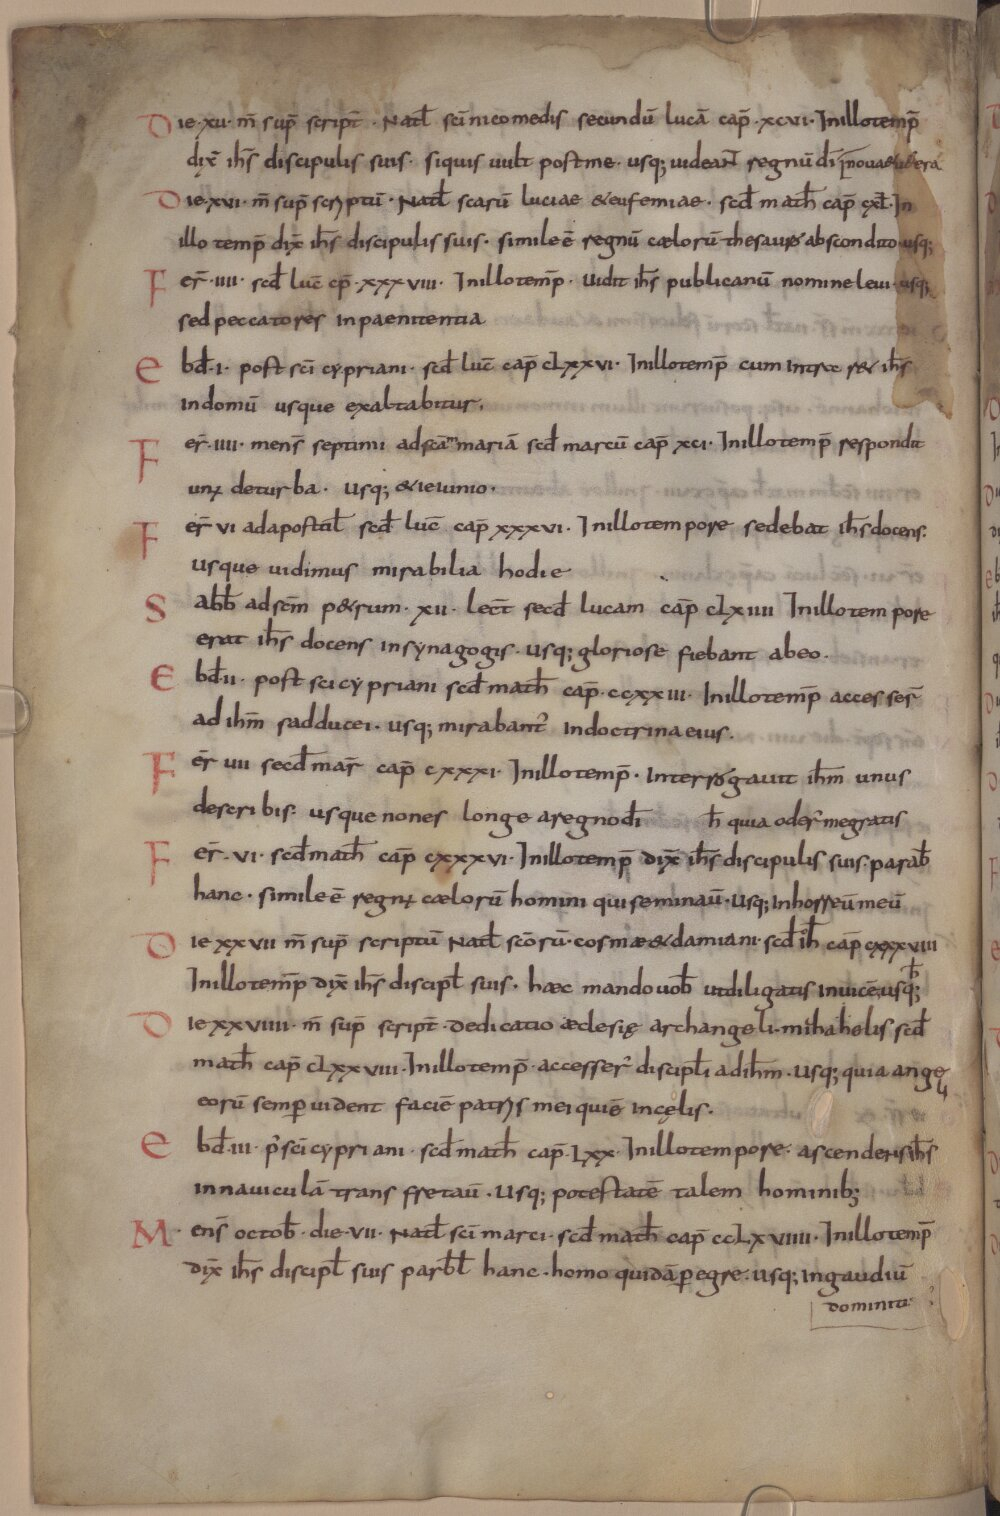 Die·xu· m̄ sup̄ script̄· Natł sc̄i nicomedis secundū lucā cap̄·xcvi· Inillotemp̄
dix̄ ih̄s discipulis suis· siquis uult postme· usq; uideant regnū dī
Die·xvi· m̄ sup̄ scryptū· Natł scarū luciae &eufemiae· scđ math̄ cap̄ cxł· In
illo temp̄ dix̄ ih̄s discipulis suis· simile ē regnū cælorū thesauro abscondito· usq;
Fer̄·iiii· scđ luc̄ cp̄·xxxviii· Inillotemp̄· uidit ih̄s publicanū nomine leui· usq;
sed peccatores inpaenitentia
Ebđ·i· post sc̄i cypriani· scđ luc̄ cap̄ clxxvi· Inillotemp̄ cum intrar& ih̄s
indomū usque exaltabitur·
Fer̄·iiii· mens̄ septimi adscā mariā scđ marcū cap̄ xci· Inillotemp̄ respondit
unꝰ deturba· usq; &ieiunio·
Fer̄ vi adapostuł scđ luc̄ cap̄ xxxvi· Inillotempore sedebat ih̄s docens·
usque uidimus mirabilia hodie
Sabƀ adsc̄m p&rum· xii· lect̄ secđ lucam cap̄ clxiiii Inillotempore
erat ih̄s docens insynagogis· usq; gloriose fiebant abeo·
Ebđ·ii· post sci cypriani scđ math̄ cap̄·ccxxiii· Inillotemp̄ accesser̄
ad ih̄m sadducei· usq; mirabant̄ indoctrina eius·
Fer̄ uii secđ mar̄ cap̄ cxxxi· Inillotemp̄· interrogauit ih̄m unus
describis· usque nones longe aregnodī h̄ quia oder̄ megratis
Fer̄·vi· scđ math̄ cap̄ cxxxvi· Inillotemp̄ dix̄ ih̄s discipulis suis· paraƀ
hanc· simile ē regnꝰ cælorū homini qui seminau̅· usq; inhorreū meū
Die xxvii m̄ sup̄ scriptū Natł scōrū· cosmæ&damiani· scđ ioh̄ cap̄ cxxxviii
Inillotemp̄ dix̄ ih̄s discipł suis· hæc mando uoƀ utdiligatis inuicē usq;
Die xxviiii· m̄ sup̄ script̄· dedicatio æclesię archangeli· mihahelis scđ
math̄ cap̄ clxxviii· Inillotemp̄· accesser̄ discipłi adih̄m· usq; quia angeli
eorū semp uident faciē patrys mei quiē incęlis·
Ebđ·iii· p̄ sc̄i cypriani· scđ math̄ cap̄·lxx· Inillotempore· ascendens ih̄s
innauiculā transffretau̅· usq; potestatē talem hominib;
M·ens̄ octoƀ· die·vii· Natł sc̄i marci· scđ math̄ cap̄ cclxviiii· Inillotemp̄
dix̄ ih̄s discipł suis parƀł hanc· homo quidā peregre· usq; ingaudiū
domini tui